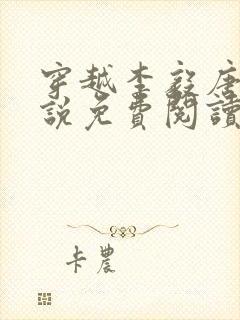 穿越李毅唐
說免費閱讀
卡農